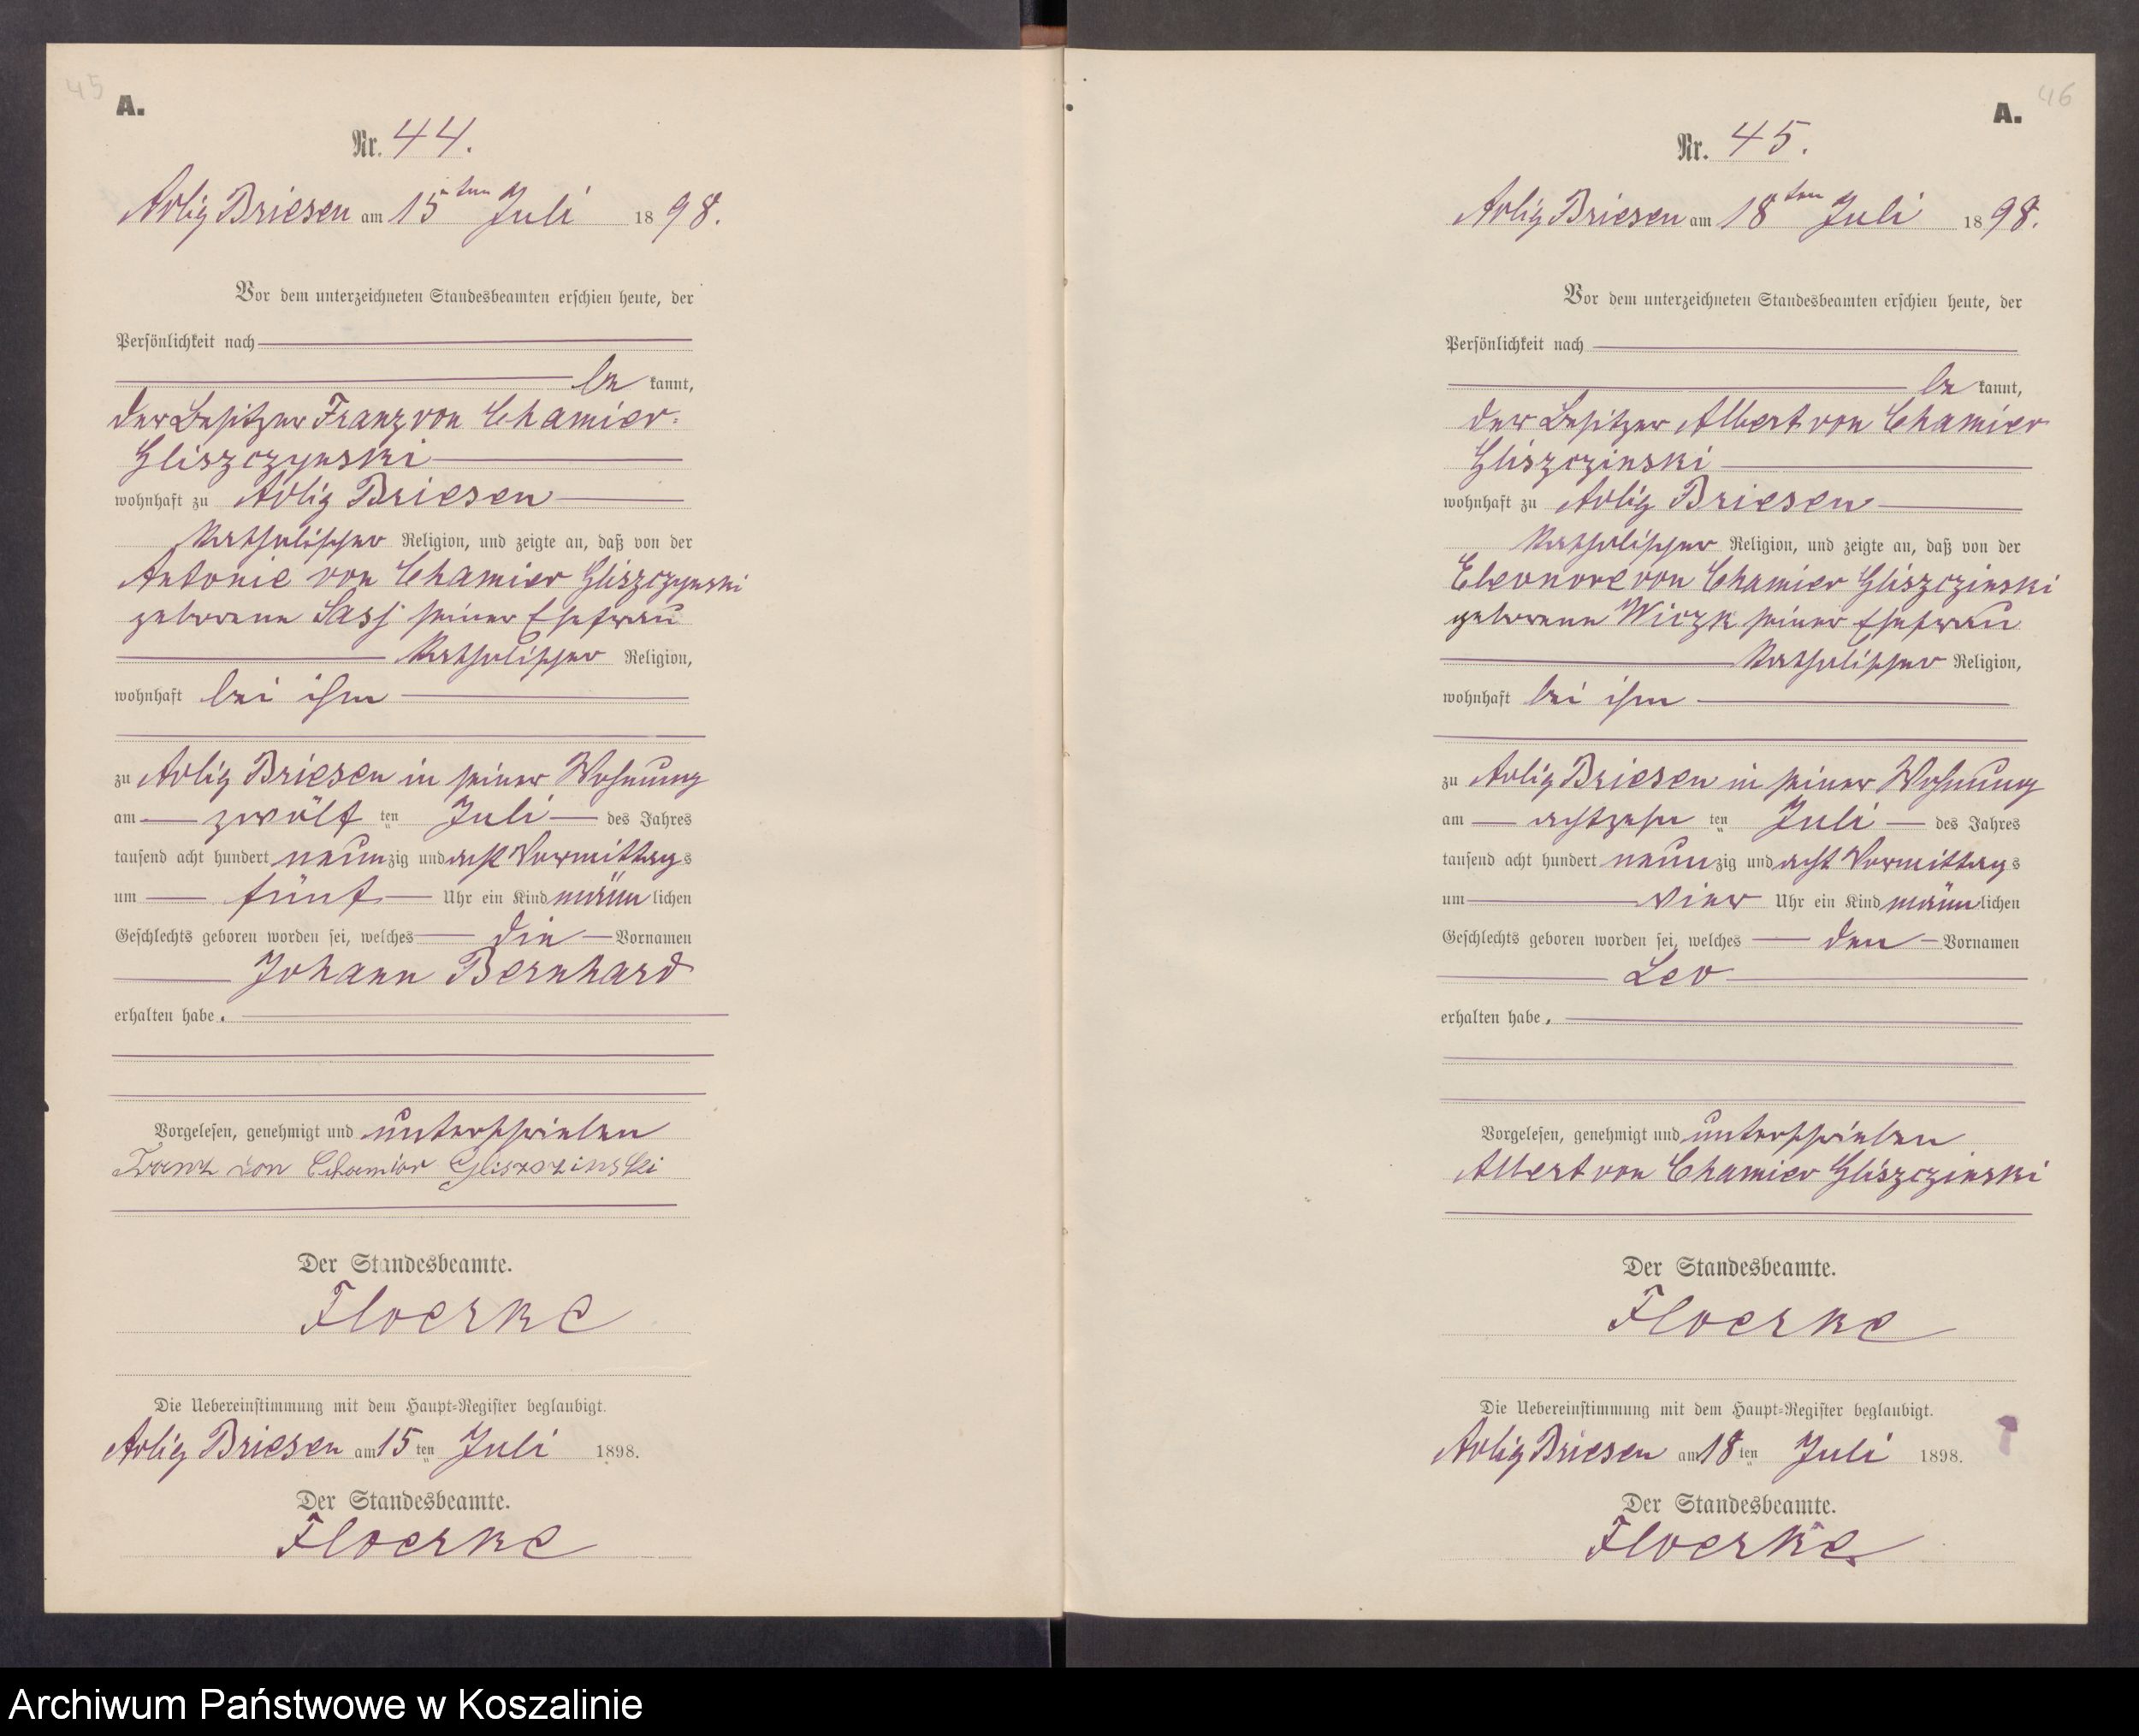 45
A.
Nr. 44.
Adlig Briesen am 15ten Juli 1898.
Vor dem unterzeichneten Standesbeamten erschien heute, der
Persönlichkeit nach
be kannt,
der Besitzer Franz von Chamier-
Gliszczynski
wohnhaft zu Adlig Briesen
katholischer Religion, und zeigte an, daß von der
Antonie von Chamier Gliszczynski
geborene Sass seiner Ehefrau
katholischer Religion,
wohnhaft bei ihm
zu Adlig Briesen in seiner Wohnung
am zwölf ten Juli des Jahres
tausend acht hundert neunzig und acht Vormittags
um fünf Uhr ein Kind männlichen
Geschlechts geboren worden sei, welches die Vornamen
Johann Bernhard
erhalten habe.
Vorgelesen, genehmigt und unterschrieben
Franz von Chamier Gliszczinski
Der Standesbeamte.
Floerke
Die Uebereinstimmung mit dem Haupt-Register beglaubigt.
Adlig Briesen am 15ten Juli 1898.
Der Standesbeamte.
Floerke
46
A.
Nr. 45.
Adlig Briesen am 18ten Juli 1898.
Vor dem unterzeichneten Standesbeamten erschien heute, der
Persönlichkeit nach
be kannt,
der Besitzer Albert von Chamier
Gliszczinski
wohnhaft zu Adlig Briesen
katholischer Religion, und zeigte an, daß von der
Eleonore von Chamier Gliszczinski
geborene Wiczk seiner Ehefrau
katholischer Religion,
wohnhaft bei ihm
zu Adlig Briesen in seiner Wohnung
am achtzehn ten Juli des Jahres
tausend acht hundert neunzig und acht Vormittags
um vier Uhr ein Kind männlichen
Geschlechts geboren worden sei, welches den Vornamen
Leo
erhalten habe.
Vorgelesen, genehmigt und unterschrieben
Albert von Chamier Gliszczinski
Der Standesbeamte.
Floerke
Die Uebereinstimmung mit dem Haupt-Register beglaubigt.
Adlig Briesen am 18ten Juli 1898.
Der Standesbeamte.
Floerke
Archiwum Państwowe w Koszalinie